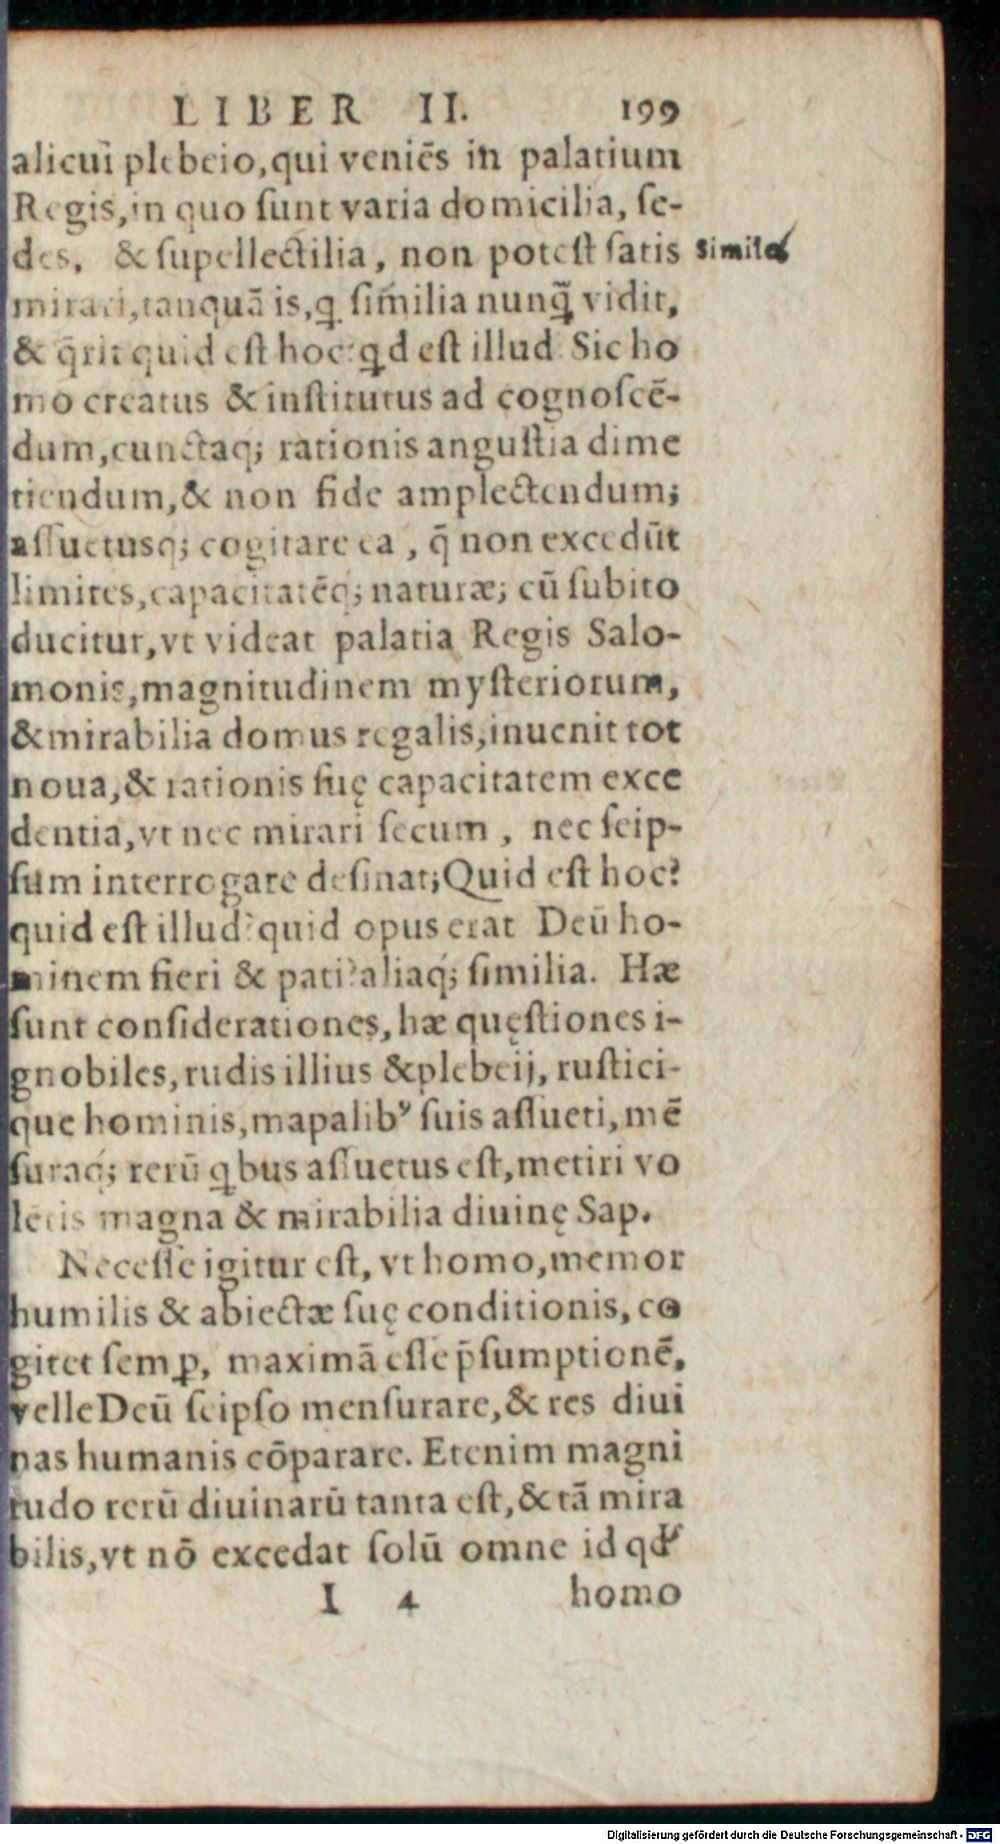 LIBER II. 199
alicui plebeio, qui veniēs in palatium
Regis, in quo ſunt varia domicilia, ſe-
des, & ſupellectilia, non poteſt ſatis
Simile
mirari, tanquā is, ꝗ ſimilia nunꝗ̃ vidit,
& q̄rit quid eſt hoc? ꝗd eſt illud? Sic ho
mo creatus & inſtitutus ad cognoſcē-
dum, cunctaq; rationis anguſtia dime
tiendum, & non fide amplectendum;
aſſuetusq; cogitare ea, q̄ non excedūt
limites, capacitatēq; naturæ; cū ſubito
ducitur, vt videat palatia Regis Salo-
monis, magnitudinem myſteriorum,
& mirabilia domus regalis, inuenit tot
noua, & rationis ſuę capacitatem exce
dentia, vt nec mirari ſecum, nec ſeip-
ſum interrogare deſinat; Quid eſt hoc?
quid eſt illud? quid opus erat Deū ho-
minem fieri & pati? aliaq́; ſimilia. Hæ
ſunt conſiderationes, hæ quęſtiones i-
gnobiles, rudis illius & plebeij, ruſtici-
que hominis, mapalibꝰ ſuis aſſueti, mē
ſuraq́; rerū ꝗbus aſſuetus eſt, metiri vo
lētis magna & mirabilia diuinę Sap.
Neceſſe igitur eſt, vt homo, memor
humilis & abiectæ ſuę conditionis, co
gitet ſemꝑ, maximā eſſe p̄ſumptionē,
velle Deū ſeipſo menſurare, & res diui
nas humanis cōparare. Etenim magni
tudo rerū diuinarū tanta eſt, & tā mira
bilis, vt nō excedat ſolū omne id qđ
I 4 homo
Digitalisierung gefördert durch die Deutsche Forschungsgemeinschaft - DFG